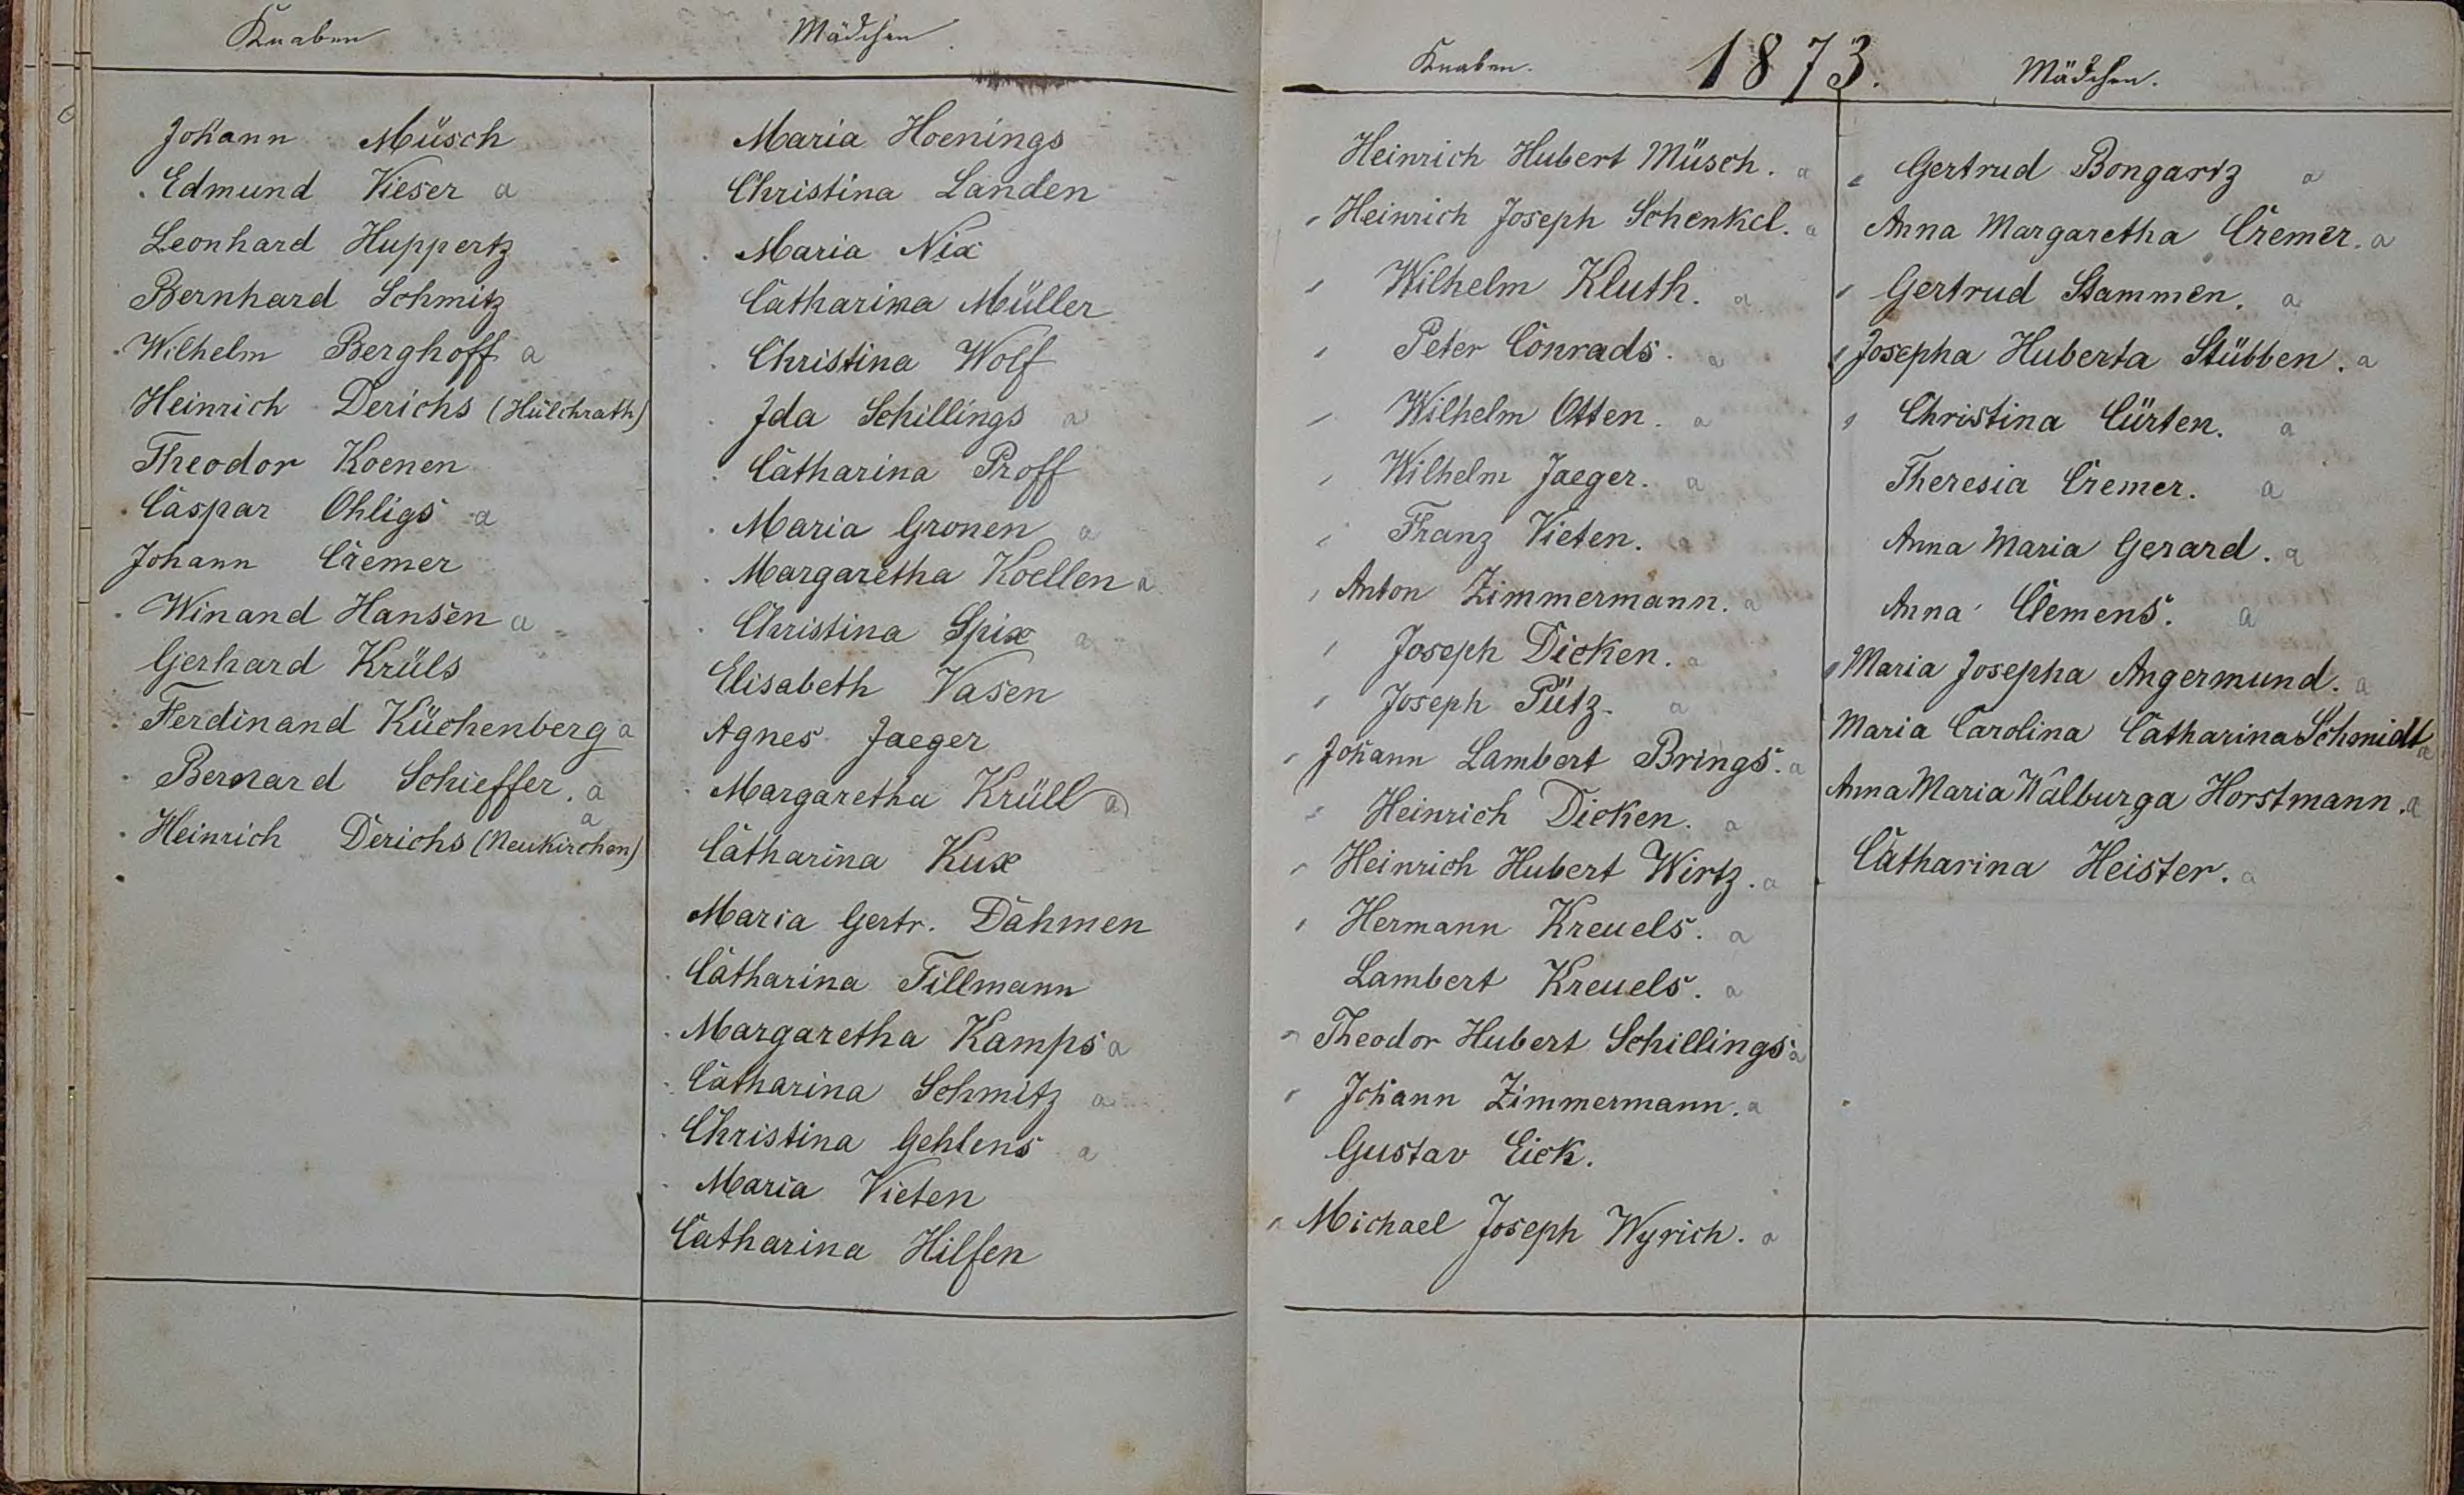 Knaben
Johann Müsch
Edmund Vieser a
Leonhard Huppertz
Bernhard Schmitz
Wilhelm Berghoff a
Heinrich Derichs (Hülchrath)
Theodor Koenen
Caspar Ohligs a
Johann Cremer
Winand Hansen a
Gerhard Krüls
Ferdinand Küchenberg a
Bernard Schieffer. a
Heinrich Derichs (Neukirchen) a
Mädchen.
Maria Hoenings
Christina Landen
Maria Nix
Catharina Müller
Christina Wolf
Ida Schillings a
Catharina Proff
Maria Gronen a
Margaretha Koellen a
Christina Spix a
Elisabeth Vasen
Agnes Jaeger
Margaretha Krüll a
Catharina Kux
Maria Gertr. Dahmen
Catharina Tillmann
Margaretha Kamps a
Catharina Schmitz a
Christina Gehlens a
Maria Vieten
Catharina Hilfen
1873.
Knaben.
Heinrich Hubert Müsch. a
Heinrich Joseph Schenkel. a
Wilhelm Kluth. a
Peter Conrads. a
Wilhelm Otten. a
Wilhelm Jaeger. a
Franz Vieten. a
Anton Zimmermann. a
Joseph Dicken. a
Joseph Pütz. a
Johann Lambert Brings. a
Heinrich Dicken. a
Heinrich Hubert Wirtz. a
Hermann Kreuels. a
Lambert Kreuels. a
Theodor Hubert Schillings. a
Johann Zimmermann. a
Gustav Eick.
Michael Joseph Wyrich. a
Mädchen.
Gertrud Bongartz a
Anna Margaretha Cremer. a
Gertrud Stammen. a
Josepha Huberta Stübben. a
Christina Cürten. a
Theresia Cremer. a
Anna Maria Gerard. a
Anna Clemens. a
Maria Josepha Angermund. a
Maria Carolina Catharina Schmidt a
Anna Maria Walburga Horstmann. a
Catharina Heister. a